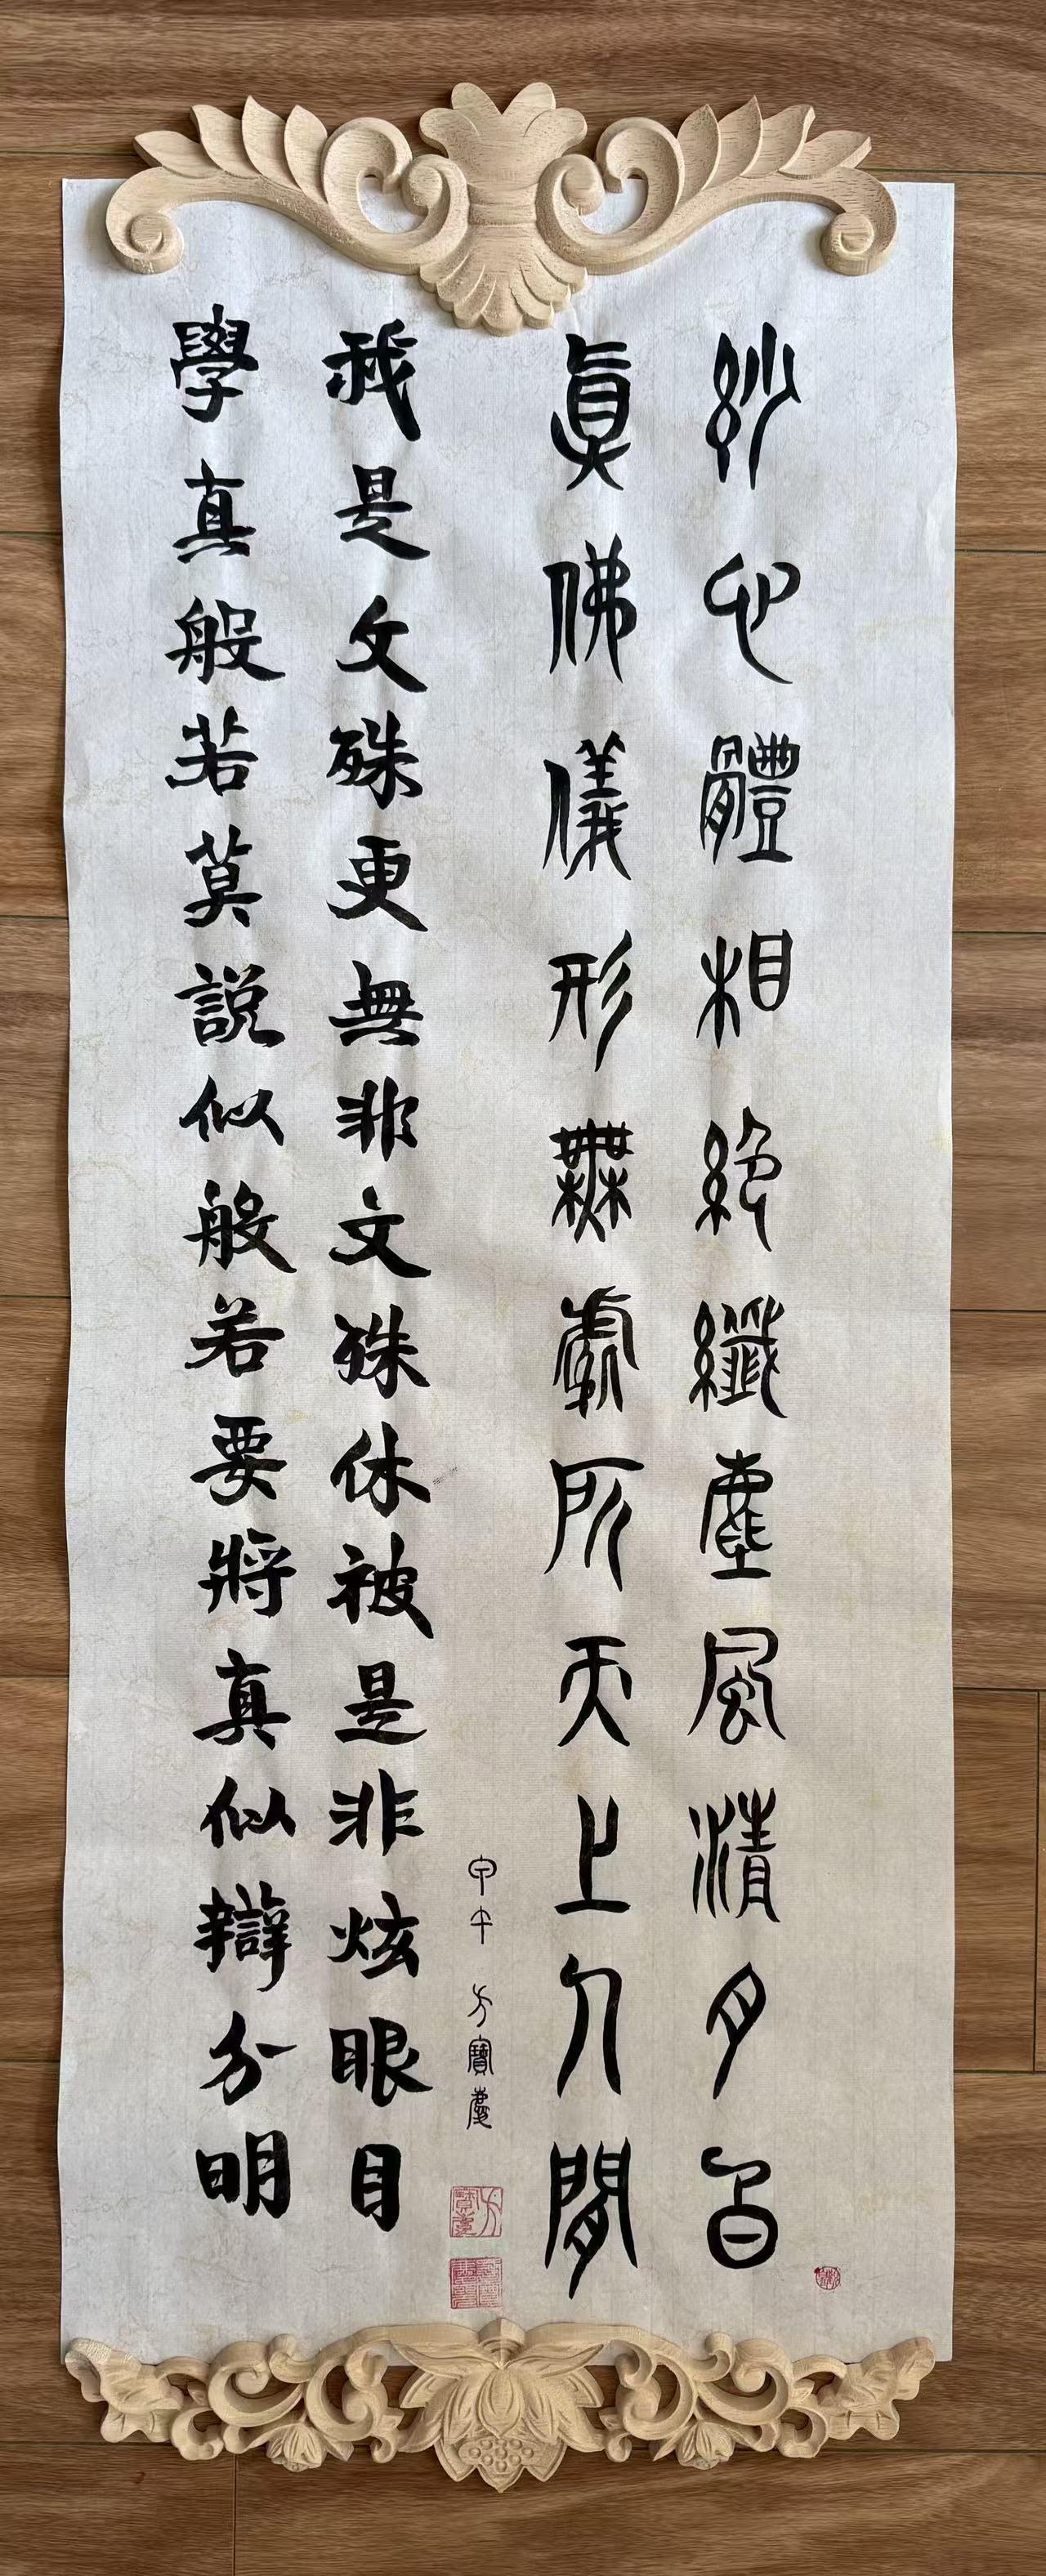 紗心體相絕纖塵風清月白
眞佛儀形無處所天上人間
甲午 方寶慶
我是文殊更無非文殊休被是非炫眼目
學真般若莫説似般若要將真似辯分明